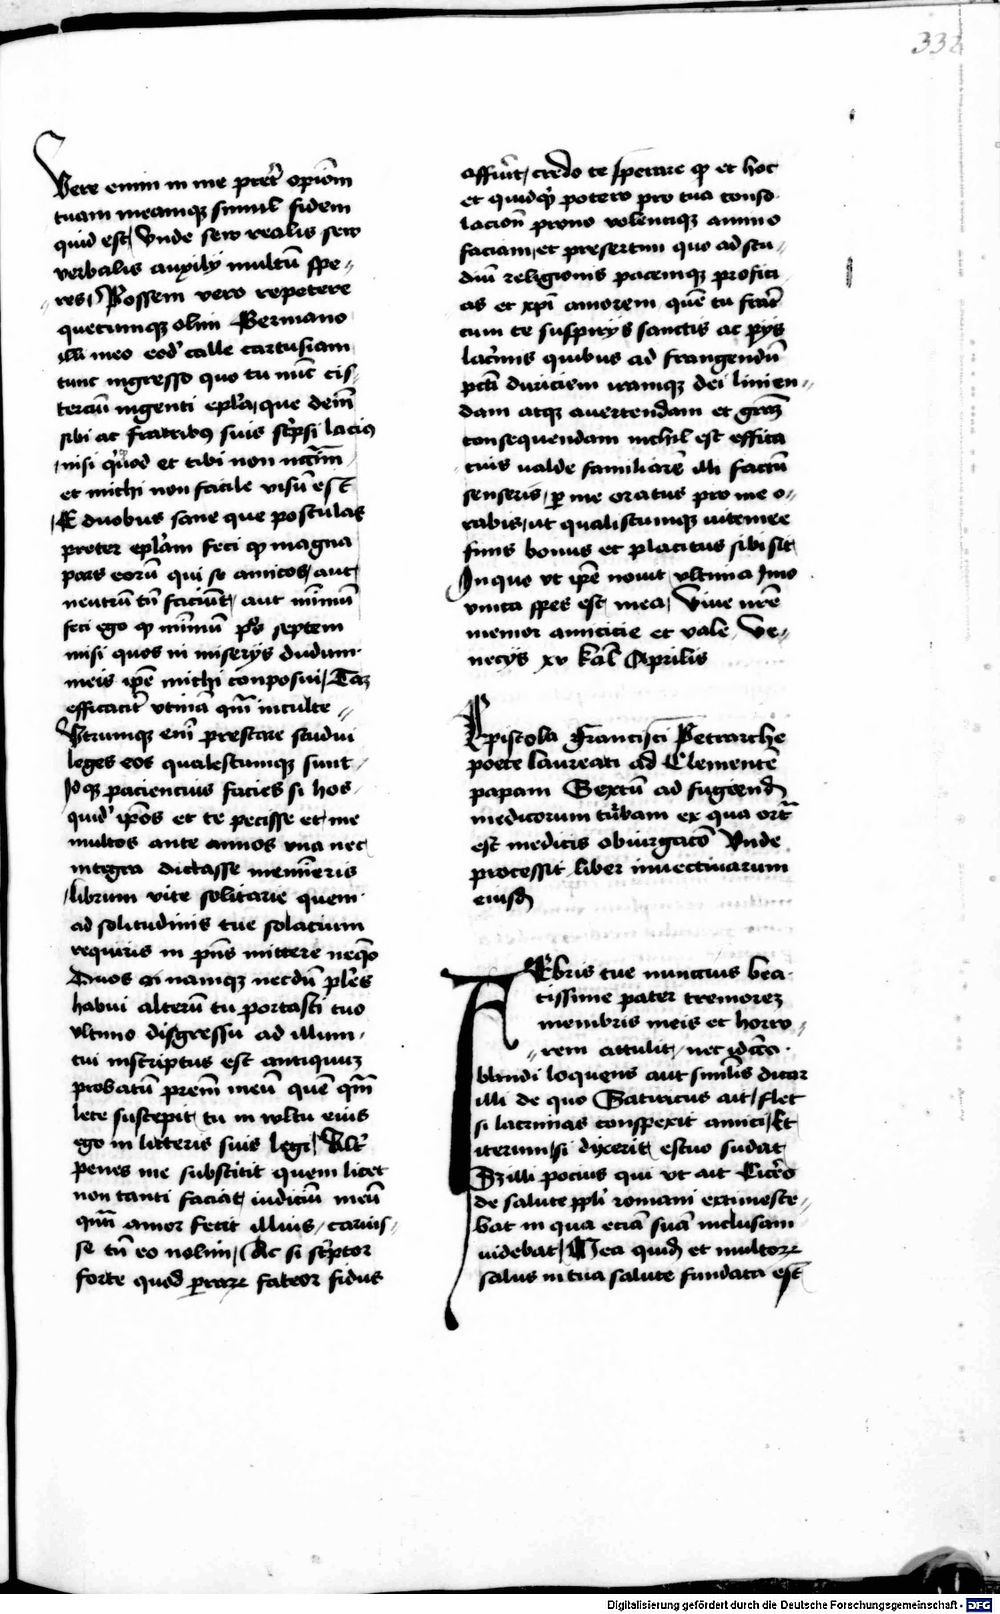 332
Vere enim in me pret̄ opiōm
tuam meamqꝫ simul fidem
quid est/ Vnde sero realis sero
verbalis auxilij multū spe〃
res/ Possem vero repetere
quecumqꝫ olim Germano
illi meo eod' calle cartusiam
tunc ingresso quo tu nūc cis〃
terciū ingenti epl̄a/ que dein̄
sibi ac fratribus suis sc̄psi lacius
misi quod et tibi non nccīm
et michi non facile visū est
E duobus sane que postulas
preter epl̄am feci qp magna
pars eorū qui se amicos/ aut
neutrū tn̄ faciūt/ aut mīmū
feci ego qp mīmū ps̄ septem
misi quos in miserijs dudum
meis ip̄e michi conposui/ Tāꝫ
efficacit̄ vtinā qm̄ inculte〃
Vtrumqꝫ em̄ prestare studui
leges eos qualescumqꝫ sunt
Idqꝫ paciencius facies si hos
quid' ip̄os et te pecisse et me
multos ante annos vna nec
integra dictasse memīeris
librum vite solitarie quem
ad solitudinis tue solacium
requiris in pn̄s mittere neqō
Duos namqꝫ necdū pl̄es
habui alterū tu portasti tuo
vltimo disgressu ad illum
cui inscriptus est antiquuꝫ
probatū prem̄ meū quē qm̄
lete suscepit tu in vultu eius
ego in litteris suis legi/ Alt̄
penes me substitit quem licet
non tanti faciat iudiciū meū
qm̄ amor fecit illius/ caruis〃
se tn̄ eo nolim/ Ac si sc̄ptor
forte quod raꝝ fateor fidus
affuīt/ credo te sperare qp et hoc
et quidqd potero pro tua conso
lacion̄ prono volentiqꝫ animo
faciam/ et presertim quo ad stu〃
diū religionis pacemqꝫ profici
as et xp̄i amorem quē tu frat̄
cum te suspirijs sanctis ac pijs
lac̄mis quibus ad frangendū
pcti duriciem iramqꝫ dei linien〃
dam atqꝫ auertendam et graꝫ
consequendam nichil est effica
cius valde familiarē illi factū
senseris/ per me oratus pro me o〃
rabis/ ut qualiscumqꝫ vite mee
finis bonus et placitus sibi sit
In quo vt ip̄e nouit vltima Imo
vnica spes est mea/ Viue nr̄e
memor amicicie et vale Ve〃
necijs xv kal̄ Aprilis
Epistola Francisci Petrarche
poete laureati ad Clementē
papam Sextū ad fugiend'
medicorum turbam ex qua ort̄
est medicis obiurgacō Vnde
processit liber inuectiuarum
eiusd'
Febris tue nuncius bea
tissime pater tremoreꝫ
membris meis et horro〃
rem attulit/ nec idc̄o
blandi loquens aut similis dicar
illi de quo Satiricus ait/ flet
si lacrimas conspexit amici/ Et
iterum/ si dixerit estuo sudat
Sꝫ illi pocius qui vt ait Cicero
de salute ppl̄i romani extimesce〃
bat in qua eciā suā inclusam
videbat/ Mea quid' et multoꝝ
salus in tua salute fundata est
Digitalisierung gefördert durch die Deutsche Forschungsgemeinschaft - DFG